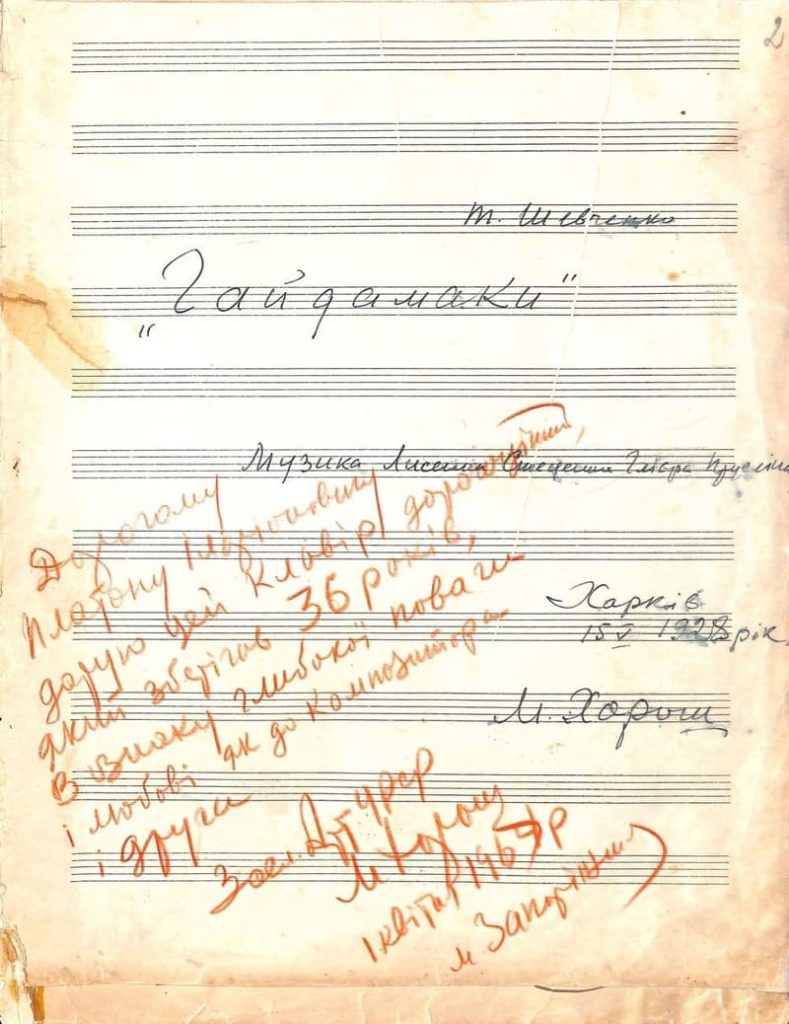 2
Т. Шевченко
„Гайдамаки"
Музика Лисенка Стеценка Глієра
Харків
15 V 1928 рік
М. Хорош
Дорогому
Платону Іларіоновичу
дарую цей клавір дорогоцінний,
який зберігав 36 років,
в ознаку глибокої поваги
і любові як до композитора
і друга
Засл. Арт УРСР
М Хорош
1 квітня
м Запоріжжя